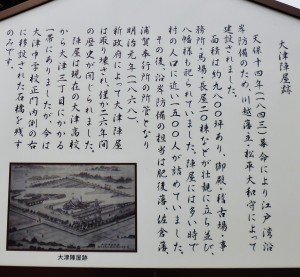 大津陣屋跡
天保十四年(一八四三)幕命により江戸湾沿
岸防備のため、川越藩主・松平大和守によって
建設されました。
面積は約九八〇〇坪あり、御殿・稽古場・事
務所・馬場・長屋二〇棟などが壮観に立ち並び、
八幡様も祀られていました。陣屋には多い時で
村の人口に近い一五〇〇人が詰めていました。
その後、沿岸防備の担当は肥後藩、佐倉藩、
浦賀奉行所の所管となり
明治元年(一八六八)、
新政府によって大津陣屋
は取り壊され僅か二六年間
の歴史が閉じられました。
陣屋は現在の大津高校
から大津三丁目にかかる
一帯にありましたが、今は
大津中学校正門内側の右
に移設された石橋を残す
のみです。
大津陣屋跡